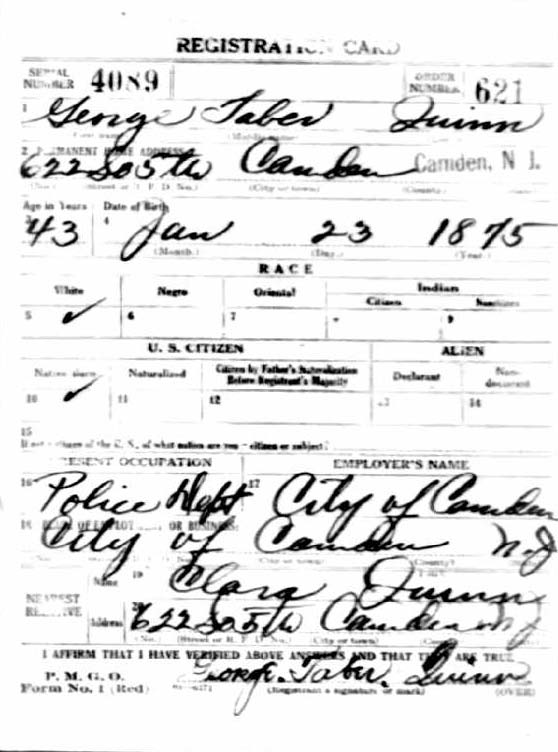 REGISTRATION CARD
SERIAL NUMBER 4089 ORDER NUMBER 621
1 George Taber Quinn
(First name) (Middle name)
2 PERMANENT HOME ADDRESS
622 So 5th Camden Camden, N J.
(No.) (Street or R. F. D. No.) (City or town) (County)
Age in Years Date of Birth
3 43 4 Jan 23 1875
(Month.) (Day.) (Year.)
RACE
White Negro Oriental Indian
Citizen Noncitizen
5 ✓ 6 7 8 9
U. S. CITIZEN ALIEN
Native born Naturalized Citizen by Father's Naturalization Before Registrant's Majority Declarant Non-declarant
10 ✓ 11 12 13 14
15
If not a citizen of the U. S., of what nation are you a citizen or subject?
PRESENT OCCUPATION EMPLOYER'S NAME
16 Police Dept 17 City of Camden
18 PLACE OF EMPLOYMENT OR BUSINESS
City of Camden N.J
(City or town) (County)
NEAREST RELATIVE Name 19 Clara Quinn
Address 20 622 So 5th Camden N J
(No.) (Street or R. F. D. No.) (City or town)
I AFFIRM THAT I HAVE VERIFIED ABOVE ANSWERS AND THAT THEY ARE TRUE
P. M. G. O.
Form No. 1 (Red) George. Taber. Quinn
(Registrant's signature or mark) (OVER)